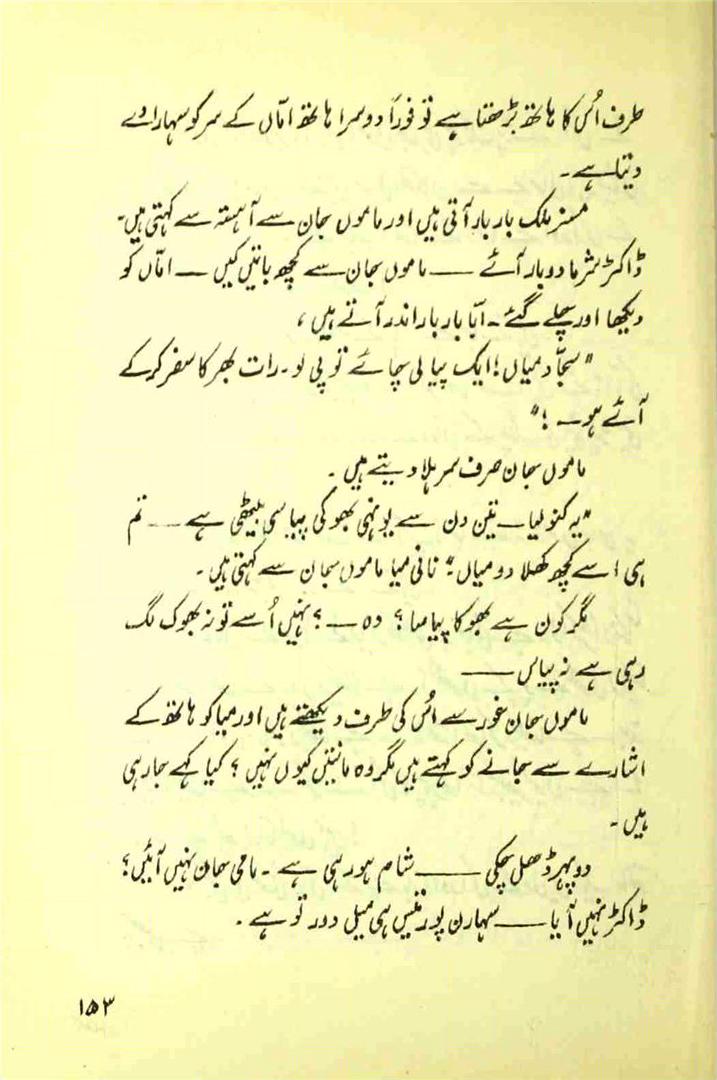 طرف اُس کا ہاتھ بڑھتا ہے تو فوراً دوسرا ہاتھ امّاں کے سر کو سہارا دے
دیتا ہے۔
مسز ملک بار بار آتی ہیں اور ماموں جان سے آہستہ سے کہتی ہیں۔
ڈاکٹر شرما دوبار آئے —— ماموں جان سے کچھ باتیں کیں — امّاں کو
دیکھا اور چلے گئے۔ ابّا بار بار اندر آتے ہیں،
"سجّاد میاں! ایک پیالی چائے تو پی لو۔ رات بھر کا سفر کر کے
آئے ہو —!"
ماموں جان صرف سر ہلا دیتے ہیں۔
"یہ کنولیا — تین دن سے یونہی بھوکی پیاسی بیٹھی ہے —— تم
ہی اسے کچھ کھلا دو میاں" نانی میا ماموں جان سے کہتی ہیں۔
مگر کون ہے بھوکا پیاسا؟ وہ —؟ نہیں اُسے تو نہ بھوک لگ
رہی ہے نہ پیاس ——
ماموں جان غور سے اُس کی طرف دیکھتے ہیں اور میا کو ہاتھ کے
اشارے سے جانے کو کہتے ہیں مگر وہ مانتیں کیوں نہیں؟ کیا کہے جا رہی
ہیں۔
دوپہر ڈھل چکی —— شام ہو رہی ہے۔ مامی جان نہیں آئیں؟
ڈاکٹر نہیں آیا —— سہارن پور تیس ہی میل دور تو ہے۔
۱۵۳